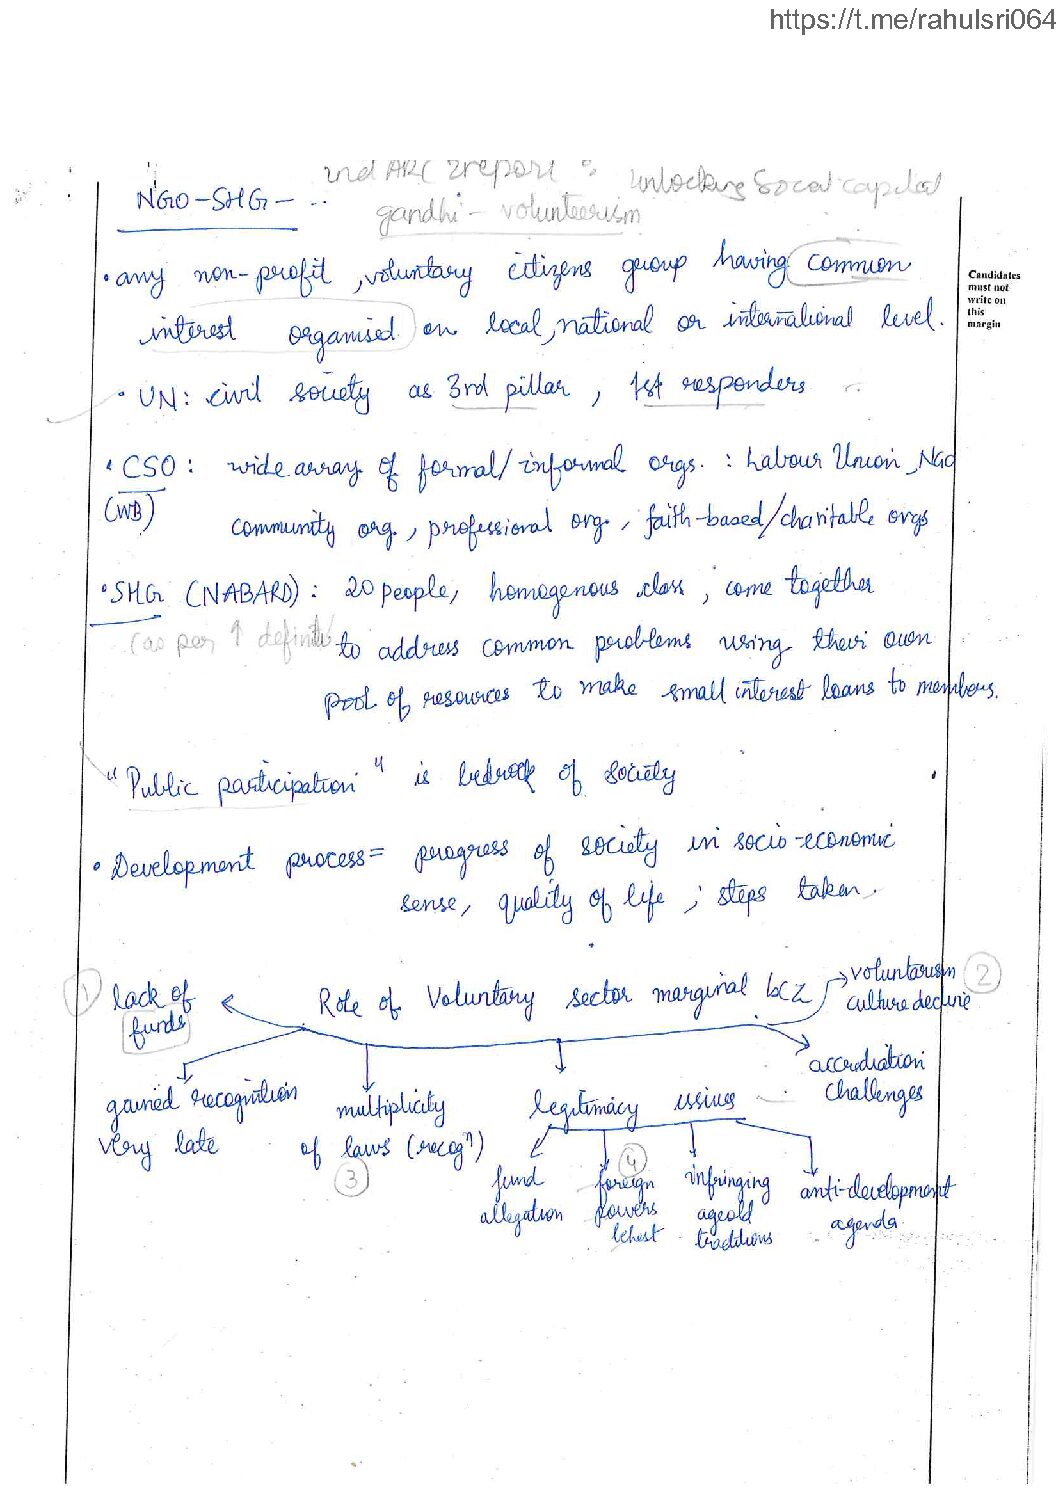 https://t.me/rahulsri064
2nd ARC report : unlocking social capital
NGO-SHG- ..
gandhi - volunteerism
• any non-profit, voluntary citizens group having common
interest organised on local, national or international level.
• UN: civil society as 3rd pillar, 1st responders
• CSO : wide array of formal/informal orgs. : Labour Union, NGO
(WB)
community org., professional org., faith-based/charitable orgs
• SHG (NABARD) : 20 people, homogenous class, come together
(as per ↑ definition
to address common problems using their own
pool of resources to make small interest loans to members.
"Public participation" is bedrock of society
• Development process = progress of society in socio-economic
sense, quality of life ; steps taken.
Candidates
must not
write on
this
margin
① lack of funds
Role of Voluntary sector marginal bcz
voluntarism ②
culture decline
accrediation
challenges
gained recognition
very late
multiplicity
of laws (recogn)
③
legitimacy issues
fund
allegation
④
foreign
powers
behest
infringing
ageold
traditions
anti-development
agenda